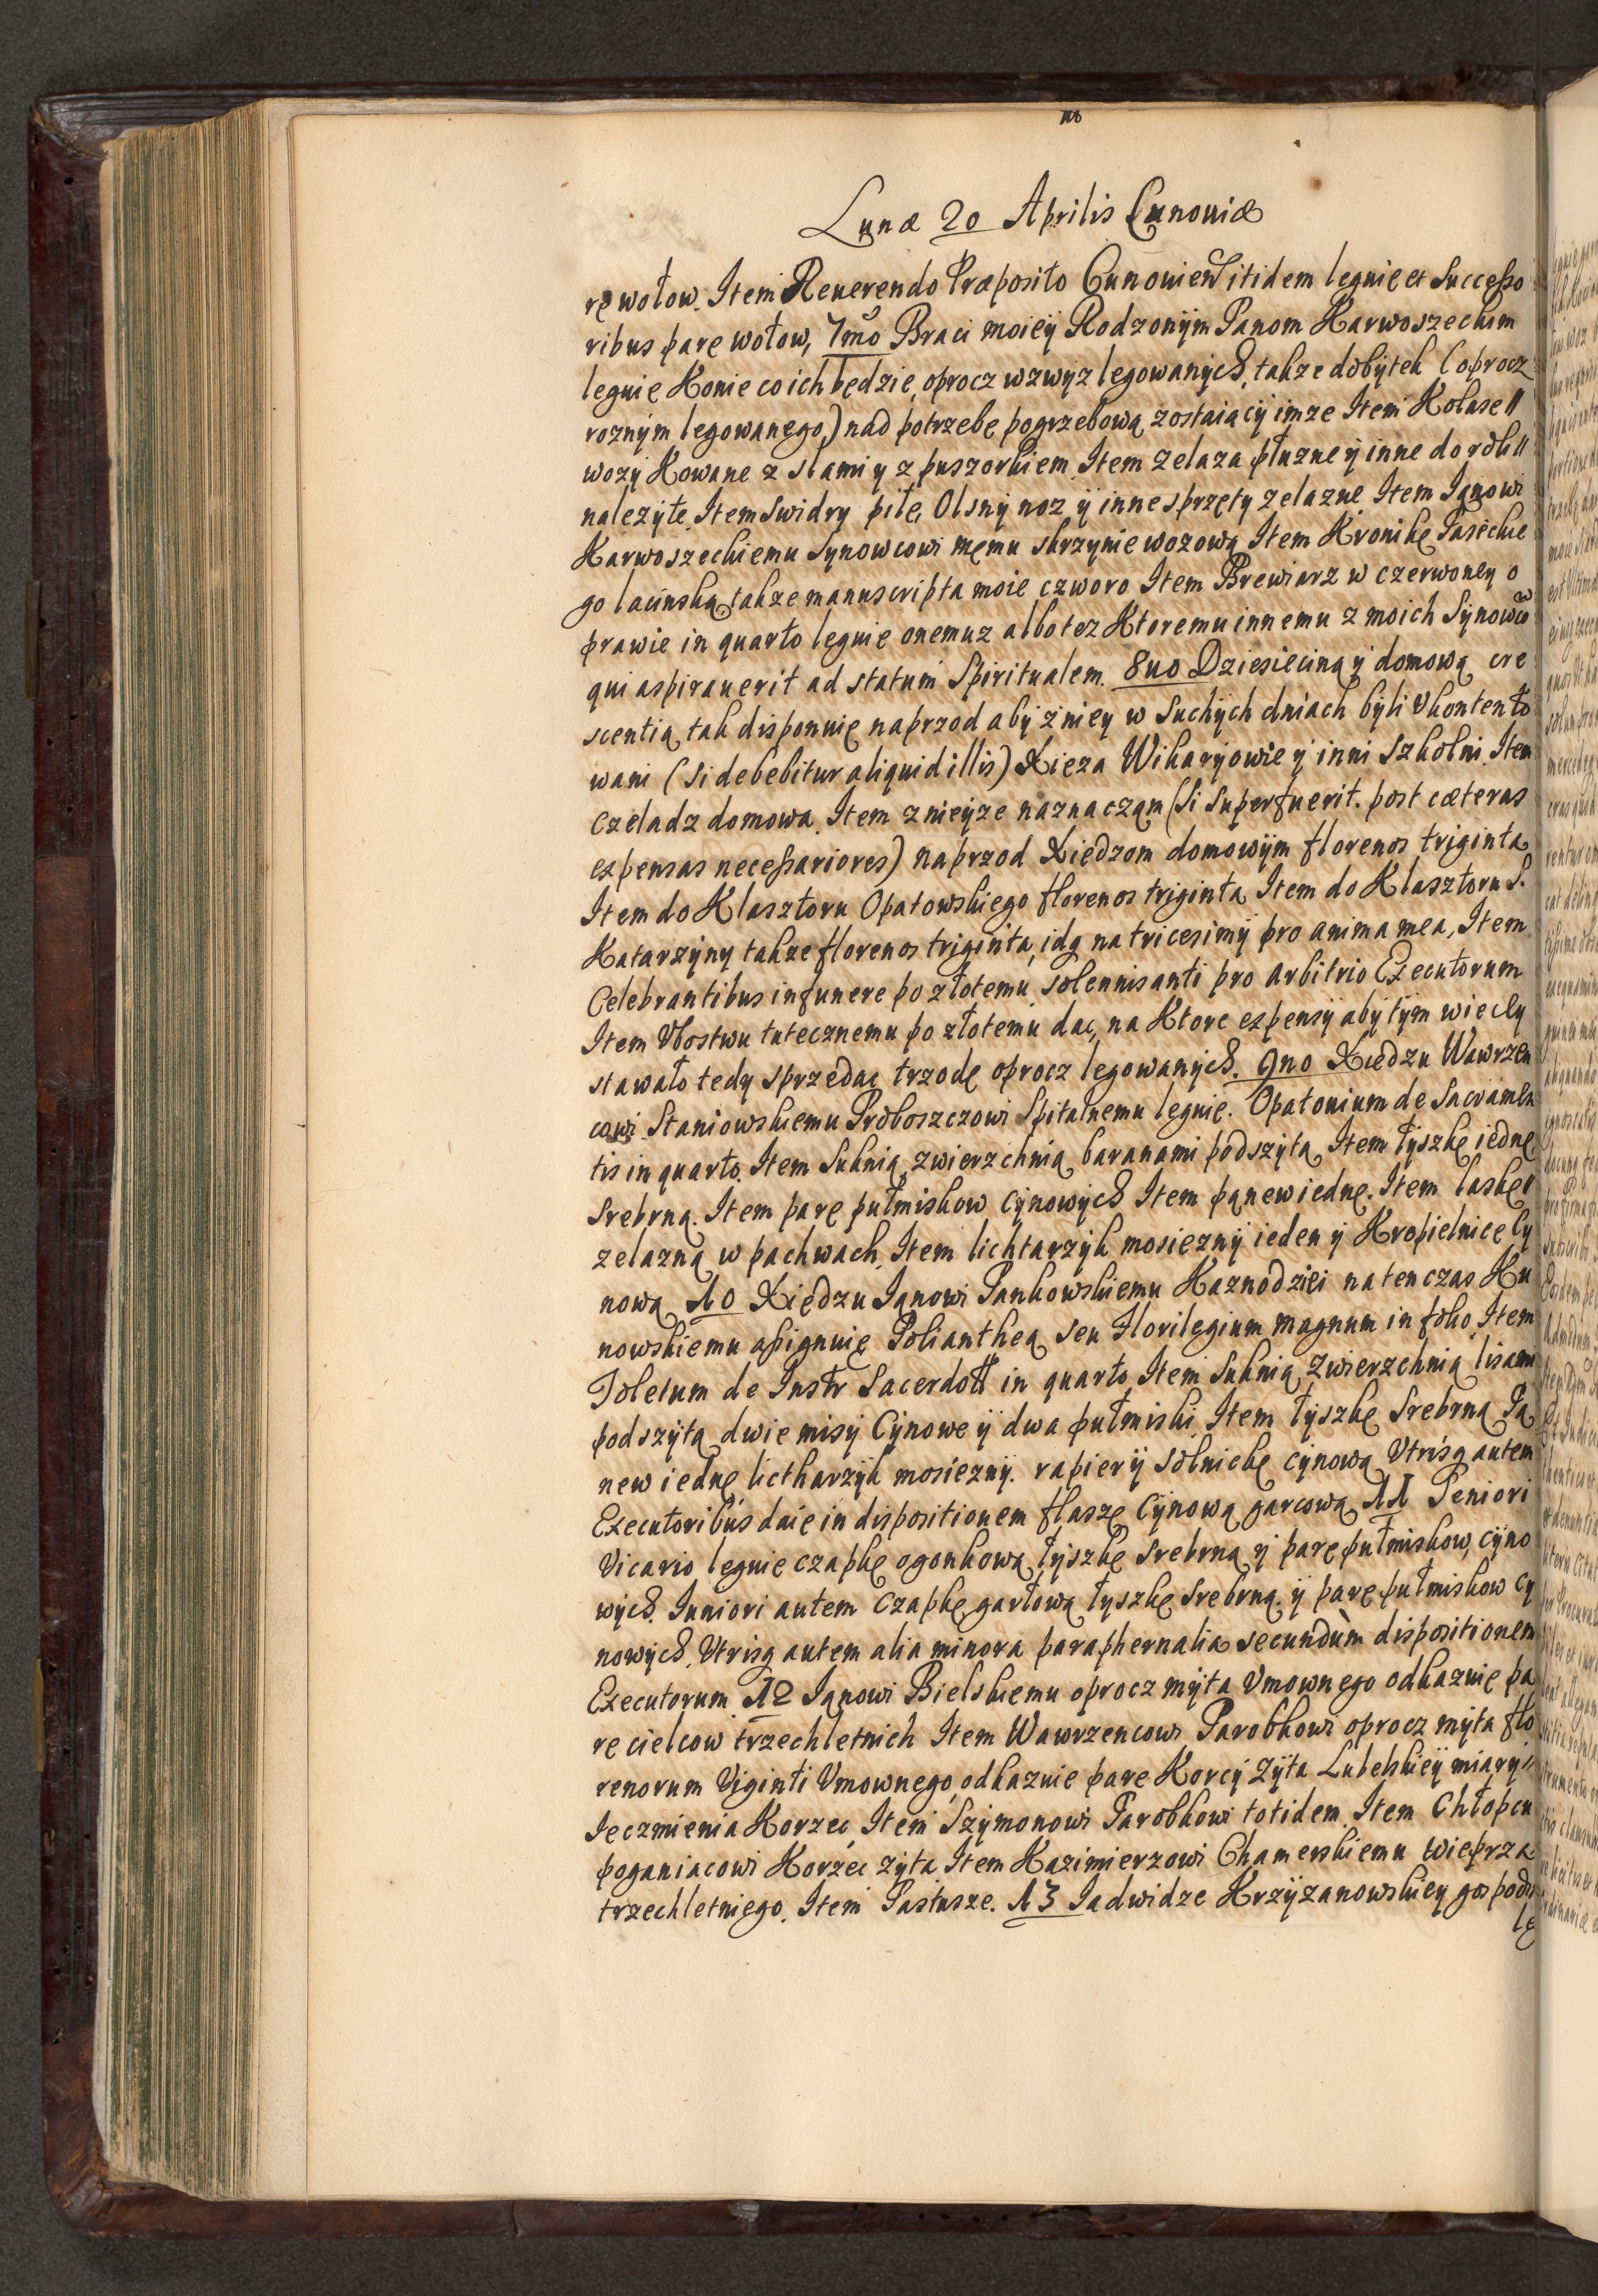 Lunæ 20 Aprilis Cunoviæ
rę wołow. Item Reuerendo Præposito Cunouien itidem leguię et Successo
ribus parę wołow, 7mo Braci moieÿ Rodzonÿm Panom Karwoszeckim
leguię Konie co ich będzie, oprocz wzwÿz legowanÿch, takze dobÿtek (oprocz
roznÿm legowanego) nad potrzebę pogrzebową zostaiącÿ imze Item Kolasę
wozÿ Kowane z slami y z puszorkiem, Item zelaza płuzne ÿ inne do roli
nalezÿte, Item Swidry piłę, Olsnÿ noz ÿ inne sprzęty zelazne Item Janowi
Karwoszeckiemu Synowcowi memu skrzynię wozową Item Kronikę Paseckie
go lacinską, takze manuscripta moie czworo Item Brewiarz w czerwoney o
prawie in quarto leguię onemuz albo tez Ktoremu innemu z moich Sÿnowcow
qui aspirauerit ad statum Spiritualem. 8uo Dziesięciną ÿ domową cre
scentią, tak disponuię naprzod abÿ z niey w Suchÿch dniach bÿli Ukontento
wani (si debebitur aliquid illis) Xięza Wikarÿowie ÿ inni Szkolni, Item
Czeladz domowa, Item z nieÿze naznaczam (Si superfuerit. post cæteras
expensas necessariores) naprzod Xiędzom domowÿm florenos triginta
Item do Klasztoru Opatowskiego florenos triginta Item do Klasztoru S.
Katarzÿny takze florenos triginta, idq na tricesimÿ pro anima mea, Item
Celebrantibus in funere po złotemu, solennisanti pro arbitrio Executorum
Item Ubostwu tutecznemu po złotemu dac, na Ktore expensÿ abÿ tÿm więcÿ
stawało tedy sprzedac trzodę oprocz legowanÿch. 9no Xiędzu Wawrzen
cowi Staniowskiemu Proboszczowi Spitalnemu leguię. Opatouium de Sacramen
tis in quarto. Item Suknią zwierzchnią baranami podszÿtą, Item łyszkę iednę
Srebrną. Item parę pułmiskow cÿnowÿch Item panew iednę. Item laskę
zelazną w pachwach, Item lichtarzÿk mosięznÿ ieden ÿ Kropielnicę Cy
nową 10 Xiędzu Janowi Pankowskiemu Kaznodziei na ten czas Ku
nowskiemu assignuię Poliantheą seu Florilegium magnum in folio, Item
Toletum de Instr Sacerdott in quarto Item Suknią zwierzchnią lisami
podszÿtą dwie misÿ Cÿnowe ÿ dwa pułmiski, Item łyszkę Srebrną Pa
new iednę lictharzÿk mosięznÿ. rapier ÿ solnickę cynową Utrisq autem
Executoribus daię in dispositionem flaszę Cÿnową garcową 11 Seniori
Vicario leguię czapkę ogonkową łÿszkę srebrną ÿ parę pułmiskow, cÿno
wÿch. Iuniori autem Czapkę garłową łyszkę srebrną. ÿ parę pułmiskow cy
nowÿch, Utrisq autem alia minora paraphernalia secundùm dispositionem
Executorum 12 Janowi Bielskiemu oprocz mÿta Umownego odkazuię pa
rę cielcow trzechletnich Item Wawrzencowi Parobkowi oprocz mÿta flo
renorum Viginti Umownego, odkazuię parę Korcÿ zÿta Lubelskieÿ miary
Ięczmienia Korzec Item Szÿmonowi Parobkowi totidem. Item Chłopcu
poganiacowi Korzec zÿta Item Kazimierzowi Chamerskiemu wieprza
trzechletniego. Item Pastusze. 13 Jadwidze Krzÿzanowskieÿ gospody